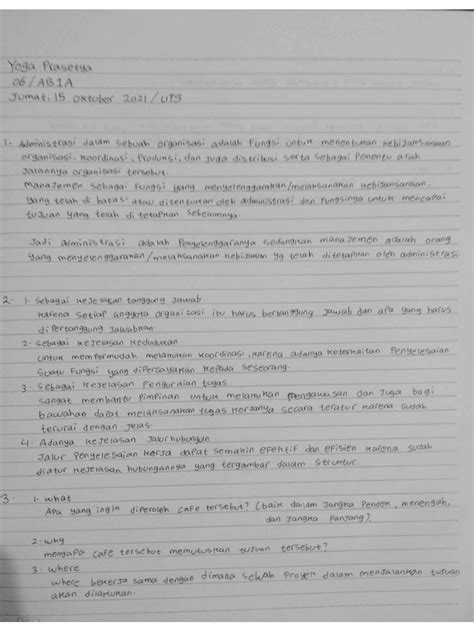 Yoga Prasetya
06/AB1A
Jumat, 15 Oktober 2021/UTS
1. Administrasi dalam sebuah organisasi adalah fungsi untuk menentukan kebijaksanaan
organisasi, koordinasi, Produksi, dan juga distribusi serta sebagai Penentu arah
jalannya organisasi tersebut.
Manajemen sebagai fungsi yang menyelenggarakan/melaksanakan kebijaksanaan,
yang telah di batasi atau ditentukan oleh administrasi dan fungsinya untuk mencapai
tujuan yang telah di tetapkan sebelumnya.
Jadi administrasi adalah Penyelenggaranya sedangkan manajemen adalah orang
yang menyelenggarakan/melaksanakan kebijakan yg telah ditetapkan oleh administrasi.
2. 1. Sebagai kejelasan tanggung jawab
Karena setiap anggota organisasi itu harus bertanggung jawab dan apa yang harus
diPertanggung jawabkan.
2. Sebagai kejelasan kedudukan
untuk mempermudah melakukan koordinasi, karena adanya keterkaitan Penyelesaian
suatu fungsi yang diPercayakan kepada seseorang.
3. Sebagai kejelasan Penguraian tugas
sangat membantu Pimpinan untuk melakukan pengawasan dan juga bagi
bawahan dapat melaksanakan tugas kerjanya secara teratur karena sudah
terurai dengan jelas.
4. Adanya kejelasan jalur hubungan
Jalur Penyelesaian kerja dapat semakin efektif dan efisien karena sudah
diatur kejelasan hubungannya yang tergambar dalam struktur.
3. 1. What
Apa yang ingin diperoleh cafe tersebut? (baik dalam jangka Pendek, menengah,
dan jangka Panjang)?
2. Why
mengapa cafe tersebut memutuskan tujuan tersebut?
3. Where
Where bekerja sama dengan dimana Proyek dalam menjalankan tujuan
akan dilakukan.